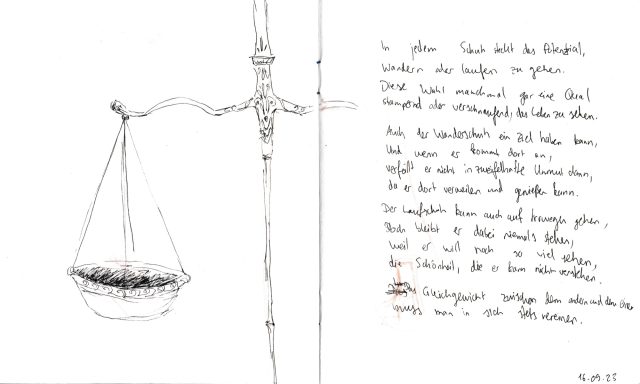 In jedem Schuh steckt das Potenzial,
Wandern oder laufen zu gehen.
Diese Wahl manchmal gar eine Qual
stampfend oder verschnaufend, das Leben zu sehen.
Auch der Wanderschuh ein Ziel haben kann,
Und wenn er kommt dort an,
verfällt er nicht in zweifelhafte Unmut dann,
da er dort verweilen und genießen kann.
Der Laufschuh kann auch auf gehen,
Doch bleibt er dabei niemals stehen,
weil er will noch so viel sehen,
die Schönheit, die er kann nicht verstehen.
Gleichgewicht zwischen dem andern und dem
muss man in sich stets vereinen.
16.09.23